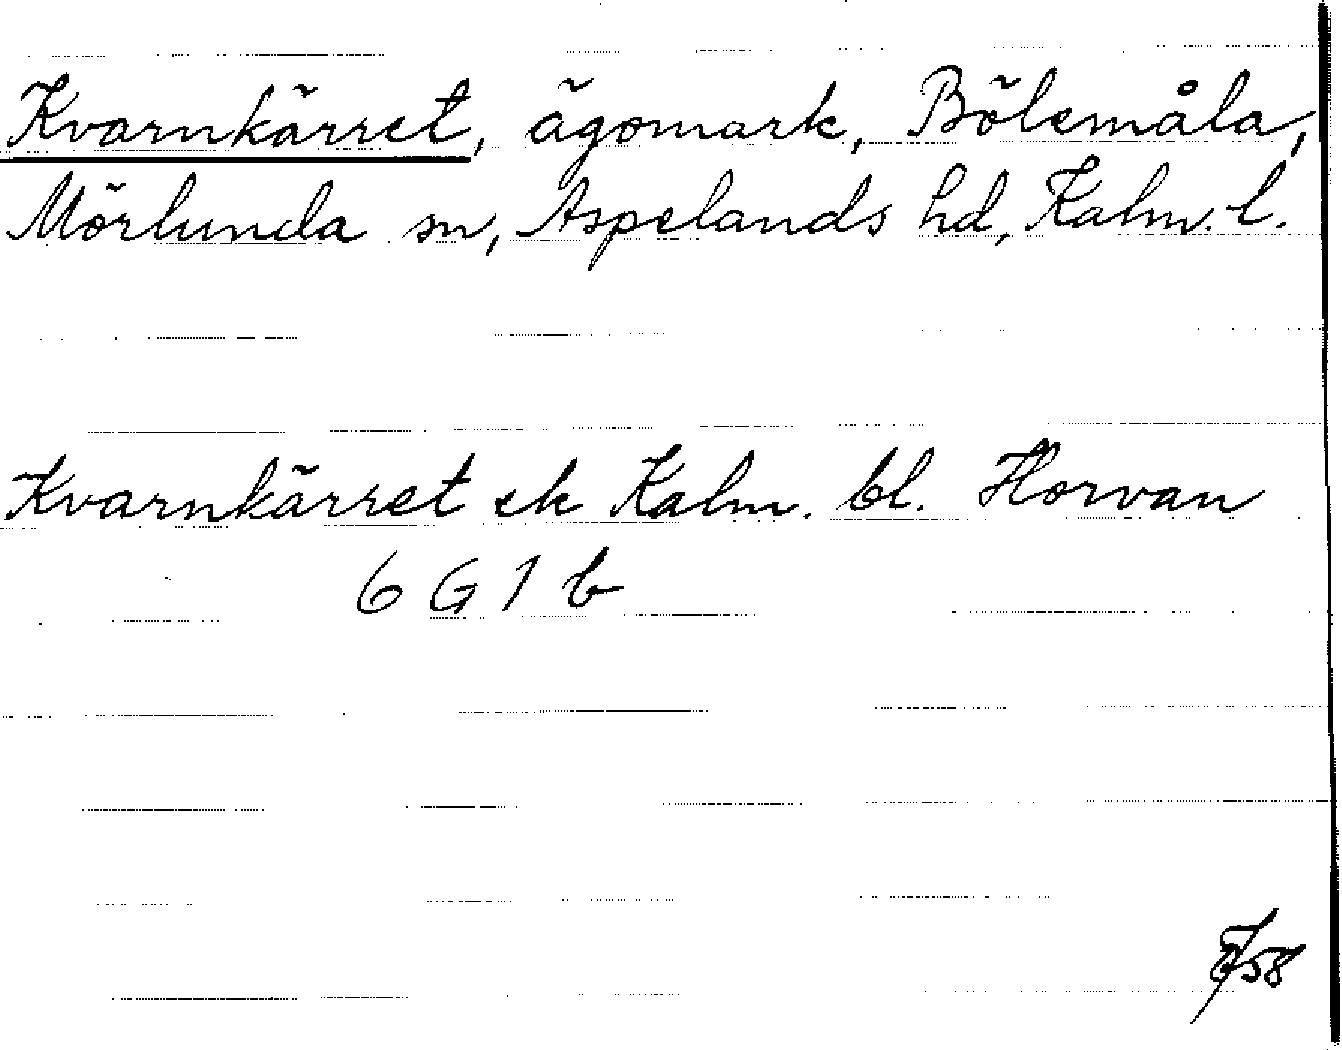 Kvarnkärret, ägomark, Bölemåla,
Mörlunda sn, Aspelands hd, Kalm. l.
Kvarnkärret ek Kalm. bl. Horvan
6 G 1 b
58